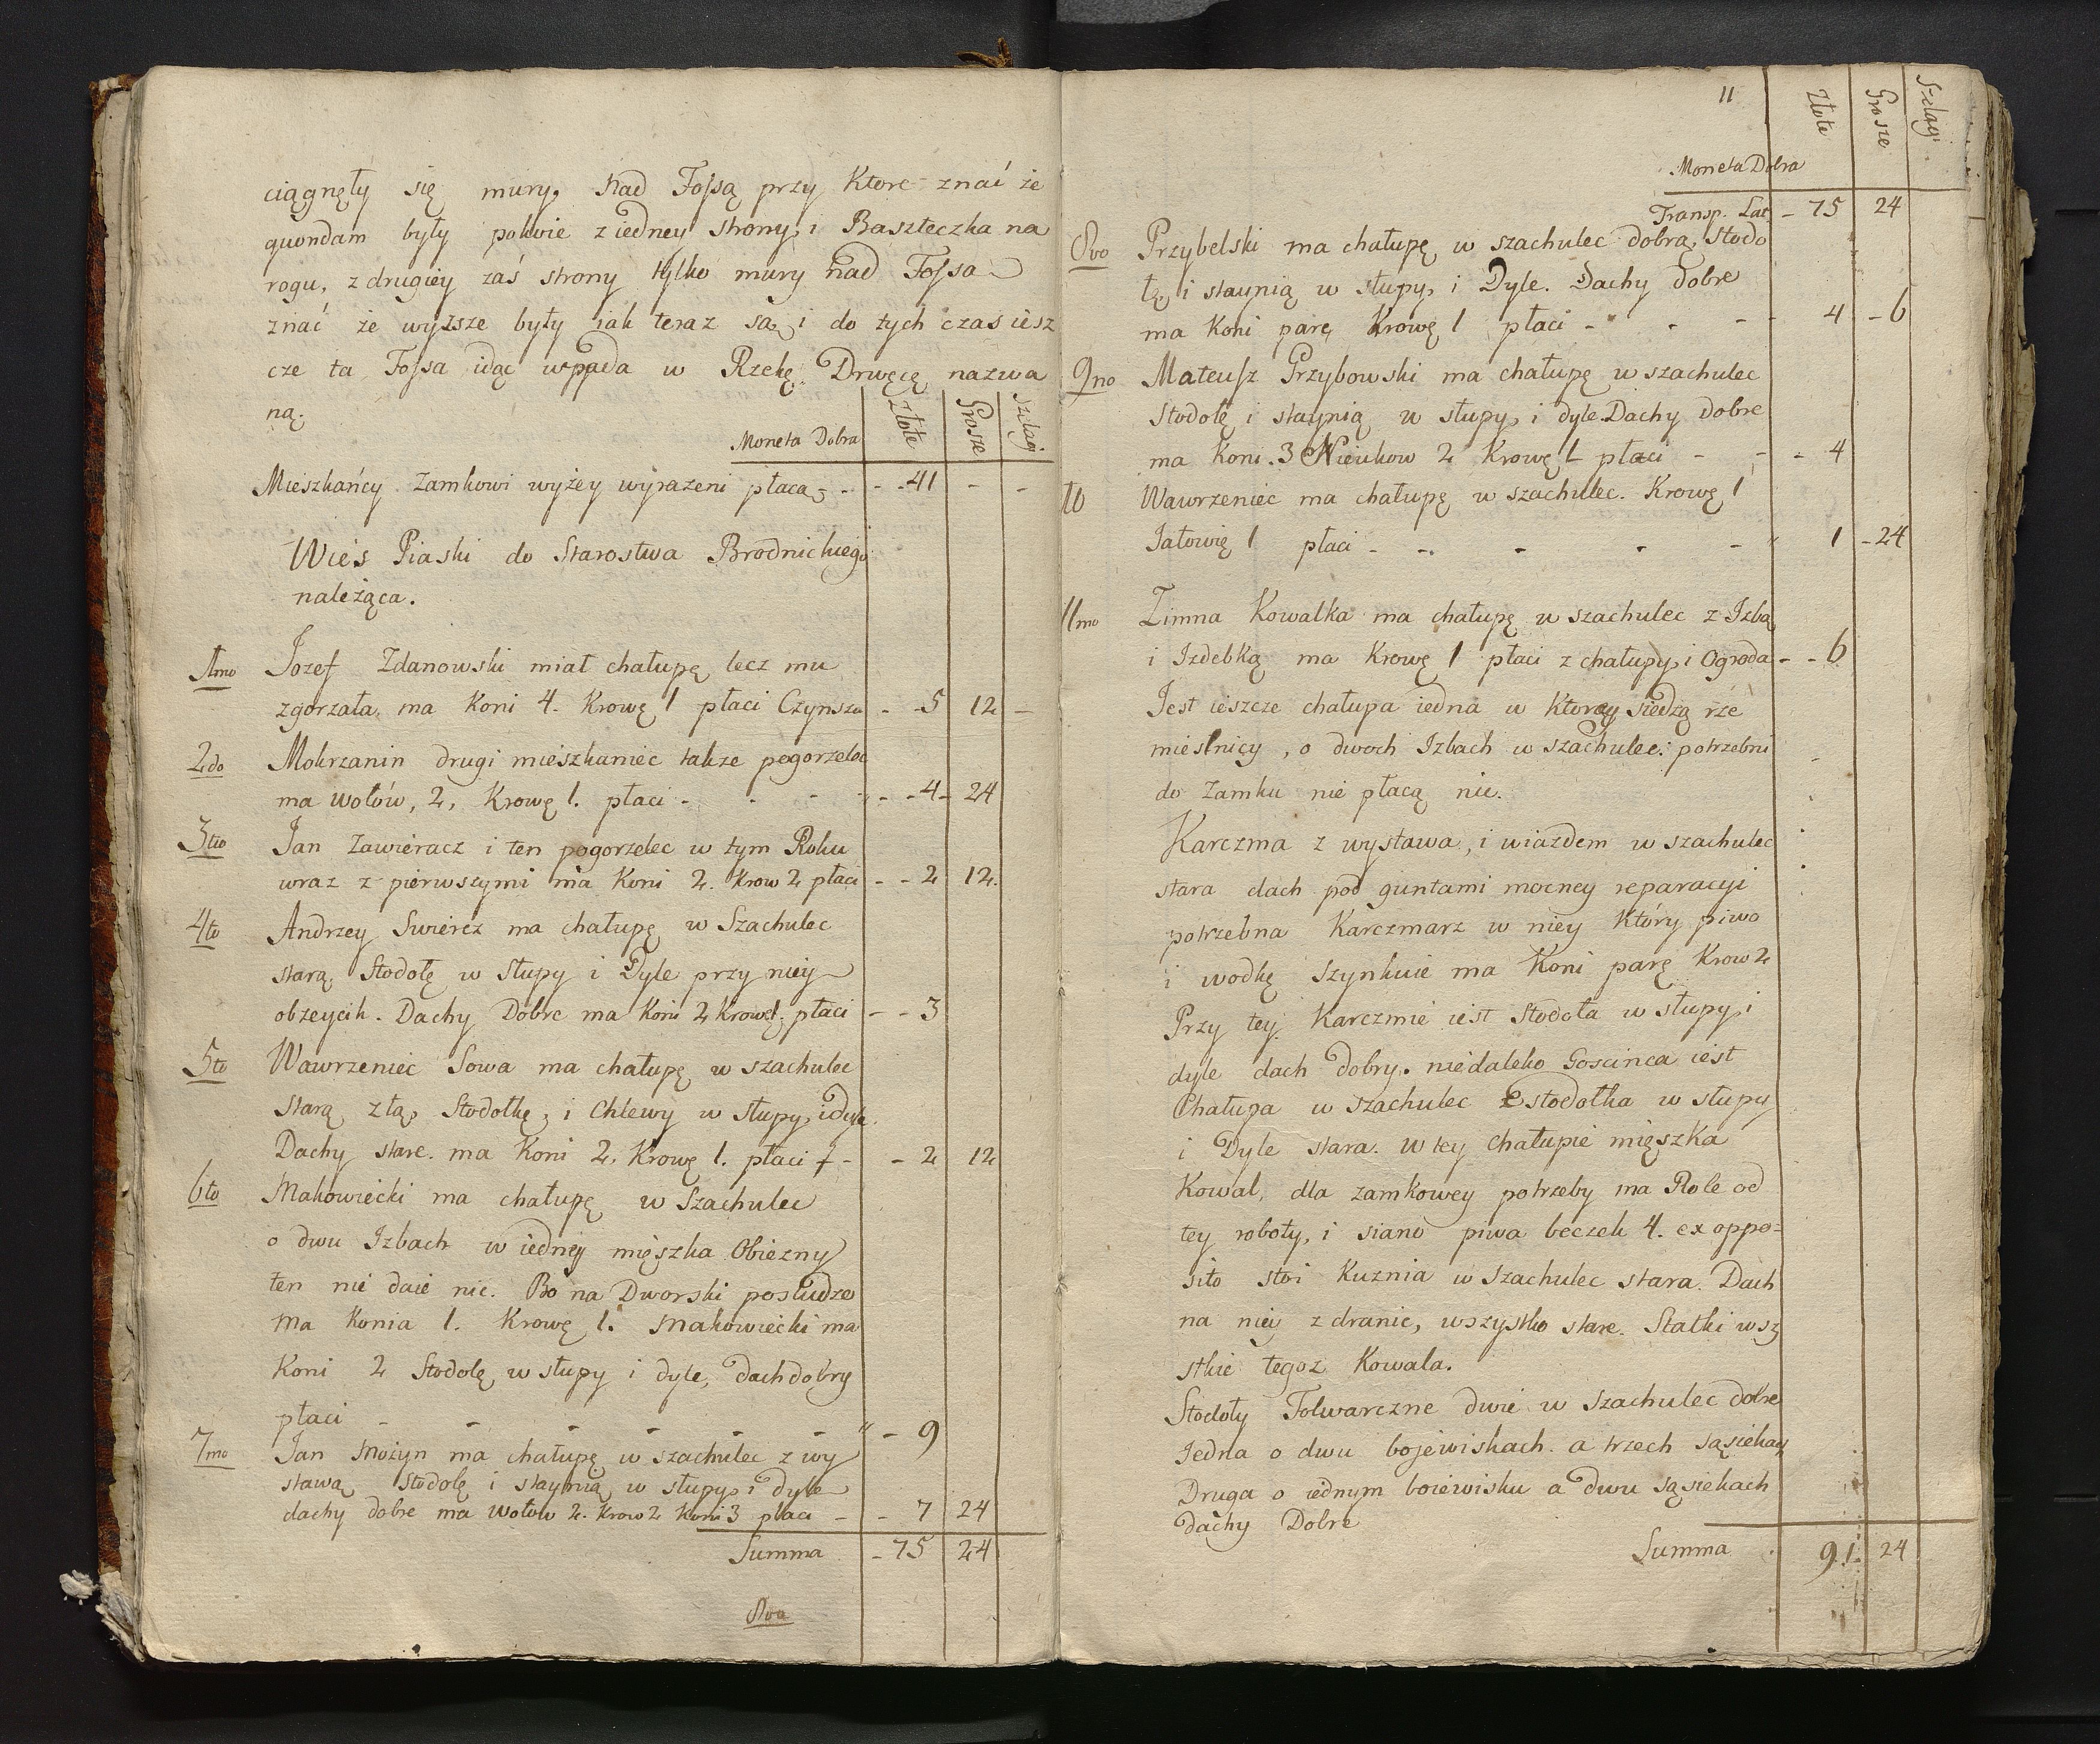 ciągnęły się mury, nad Fossą przy ktore znać że
quondam były pokoie z iedney strony, i Baszteczka na
rogu, z drugiey zaś strony tylko mury nad Fossą
znać że wyższe były iak teraz są, i do tych czas iesz
cze ta Fossa idąc wpada w Rzekę Drwęcę nazwa
ną.
Moneta Dobra Złote Grosze Szelągi
Mieszkańcy Zamkowi wyżey wyrażeni płacą - - - 41 - -
Wieś Piaski do Starostwa Brodnickiego
należąca.
1mo Jozef Zdanowski miał chałupę lecz mu
zgorzała, ma Koni 4. Krowę 1 płaci Czynszu - - 5 12 -
2do Mokrzanin drugi mieszkaniec także pogorzelec
ma wołów, 2, Krowę 1. płaci - - - - - - 4 - 24
3tio Jan Zawieracz i ten pogorzelec w tym Roku
wraz z pierwszymi ma Koni 2. Krow 2 płaci - - 2 12.
4to Andrzey Swiercz ma chałupę w Szachulec
starą, Stodołę w Słupy i Dyle przy niey
obzeycik. Dachy Dobre ma Koni 2 Krowę 1. płaci - - 3
5to Wawrzeniec Sowa ma chałupę w szachulec
starą złą, Stodołkę, i Chlewy w słupy, i Dyle.
Dachy stare. ma Koni 2. Krowę 1. płaci - - - 2 12
6to Makowiecki ma chałupę w Szachulec
o dwu Izbach w iedney mięszka Obiezny
ten nie daie nic. Bo na Dworski posłudze
ma Konia 1. Krowę 1. Makowiecki ma
Koni 2 Stodołę w słupy i dyle, dach dobry
płaci - - - - - - " - 9
7mo Jan Możyn ma chałupę w szachulec z wy
stawą stodołę i staynią w słupy, i dyle
dachy dobre ma wołow 2. Krow 2 Koni 3 płaci - - 7 24
Summa - 75 24
8vo
11
Złote Grosze Szelągi
Moneta Dobra
Transp. Lat. - 75 24
8vo Przybelski ma chałupę w szachulec dobrą, stodo
łę i staynią w słupy, i Dyle. Dachy dobre
ma Koni parę, Krowę 1 płaci - - - - 4 - 6
9no Mateusz Przybowski ma chałupę w szachulec
Stodołę i staynią w słupy, i dyle. Dachy dobre
ma Koni. 3 Krowę 1 płaci - - - 4
10 Wawrzeniec ma chałupę w szachulec. Krowę 1
Jałowię 1 płaci - - - - - " 1 - 24
11mo Zimna Kowalka ma chałupę w szachulec z Izbą
i Izdebką ma Krowę 1 płaci z chałupy, i Ogroda - - 6
Jest ieszcze chałupa iedna w Ktorey siedzą rze
mieslnicy, o dwoch Izbach w szachulec: potrzebni
do Zamku nie płacą nic.
Karczma z wystawa, i wiazdem w szachulec
stara dach pod guntami mocney reparacyi
potrzebna Karczmarz w niey Który piwo
i wodkę szynkuie ma Koni parę Krow 2
Przy tey Karczmie iest Stodoła w słupy, i
dyle dach dobry. niedaleko Goscinca iest
Chałupa w szachulec z stodołka w słupy
i Dyle stara. w tey chałupie mięszka
Kowal, dla zamkowey potrzeby ma Role od
tey roboty, i siano piwa beczek 4. ex oppo=
sito stoi Kuznia w Szachulec stara. Dach
na niey z dranic, wszystko stare. Statki wszy
stkie tegoz Kowala.
Stodoły Folwarczne dwie w Szachulec dobre
Jedna o dwu bojewiskach. a trzech sąsiekach
Druga o iednym boiewisku a dwu sąsiekach
dachy Dobre
Summa 91. 24